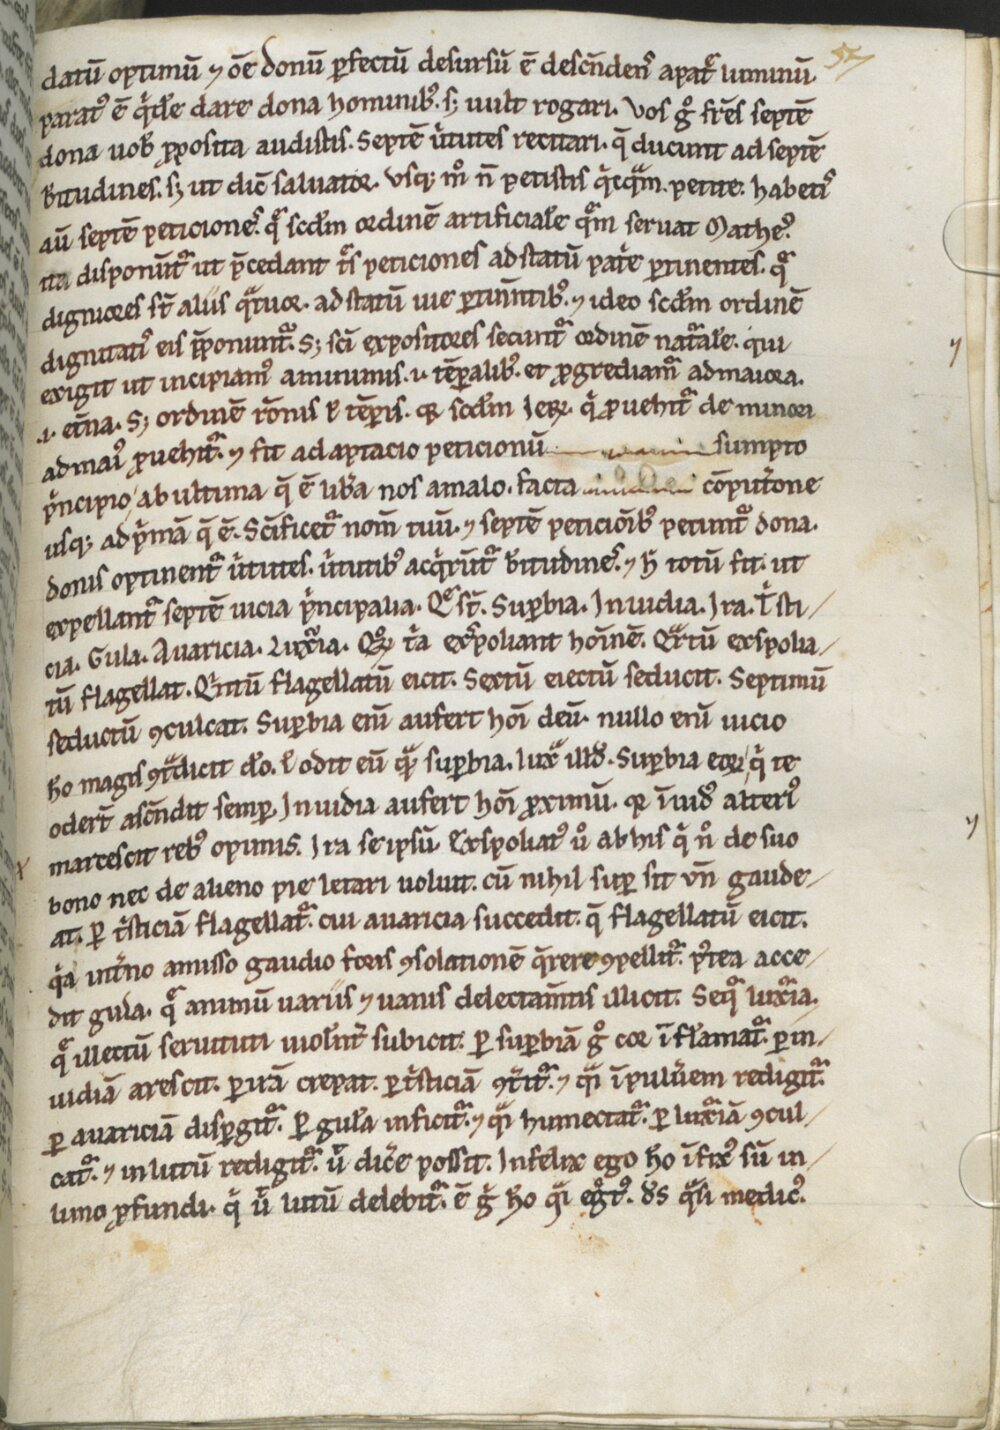 57
datū optimū ⁊ om̄e donū ꝑfectū desursū ē descēndens apat͛ luminū
parat᷒ ē q̇dē dare dona hominib᷒. sꝫ uult rogari. Vos g̊ fr̄es septē
dona uob̄ ꝓposita audistis. Septē ūtutes recitari. q̄ ducunt ad septē
b̄titudines. sꝫ ut dic̄ saluator. Usqꝫ m̊ n̄ petistis q̇cq̄m. petite. habetis
aū septē peticiones. q̄ sc̄dm ordinē artificialē q̄m seruat Mathe᷒.
ita disponūt᷑ ut p̄cedant tͥs peticiones ad statū pat̄e ꝑtinentes. q̄
digniores st̄ aliis q̄tuor. ad statū uie ꝑtinētib᷒. ⁊ ideo sc̄dm ordinē
dignitatis eis p̄ponunt᷑. Sꝫ sc̄i expositores secunt᷑ ordinē nat᷑alē. qui
exigit ut incipiam᷒ aminimis .i. tēꝑalib᷒. et ꝓgrediam᷑ admaiora.
.i. et̄na. Sꝫ ordinē rōnis ł tēꝑis. qꝛ sc̄dm Ieꝝ. q̇ ꝓuehit᷑ de minori
ad mai᷒ ꝓuehit᷑. ⁊ fit adaptacio peticionū sumpto
ṗncipio ab ultima q̄ ē lib̄a nos amalo. facta cōputōne
usqꝫ ad ṗmā q̄ ē. Sc̄ificet᷑ nom̄ tuū. ⁊ septē peticiōib᷒ petunt᷑ dona.
donis optinent᷑ ūtutes. ūtutib᷒ acq̇rūt᷑ b̄titudines. ⁊ h̄ totū fit. ut
expellant᷑ septē uicia ṗncipalia. Q̄ st̄. Suꝑbia. Inuidia. Ira. Tͥsti/
cia. Gula. Auaricia. Luxͥia. Qꝝ tͥa exspoliant hoīnē. Q̄rtū exspolia/
tū flagellat. Q̇ntū flagellatū eicit. Sextū eiectū seducit. Septimū
seductū ꝯculcat. Suꝑbia enī aufert hōi deū. nullo enī uicio
hō magis ꝯt᷑dicit dō. ł odit eū q̄ suꝑbia. iux̄ illd̄. Suꝑbia eoꝝ q̇ te
odert̄ ascēndit semꝑ. Inuidia aufert hōi ꝓximū. qꝛ īuid᷒ alteri᷒
marcescit reb᷒ opimis. Ira seipsū Exspoliat᷒ ů abhis q̇ n̊ de suo
bono nec de alieno pie letari uoluit. cū nihil suꝑ sit vn̄ gaude/
at. ꝑ tͥsticiā flagellat᷑. cui auaricia succedit. q̄ flagellatū eicit.
q̇a int̄no amisso gaudio foris ꝯsolationē q̄rere ꝯpellit᷑. p᷒tea acce/
dit gula. q̄ animū uariis ⁊ uanis delectam̄tis illicit. Seq᷑ luxͥia.
q̄ illectū seruituti uiolēt̄ subicit. ꝑ suꝑbiā g̊ cor īflamat᷑. ꝑ in/
uidiā arescit. ꝑ irā crepat. ꝑ tͥsticiā ꝯt̄it᷑. ⁊ q̄i īpulūem redigit᷑.
ꝑ auariciā disꝑgit᷑. ꝑ gulā inficit᷑. ⁊ q̄i humectat᷑. ꝑ luxͥiā ꝯcul/
cat᷑. ⁊ inlutū redigit᷑. ū dic̄e possit. Infelix ego hō īfix᷒ sū in/
limo ꝓfundi. q̇ ū lutū delebit᷑. ē g̊ hō q̄i eg̊t᷒. d̄s q̄si medic᷒.